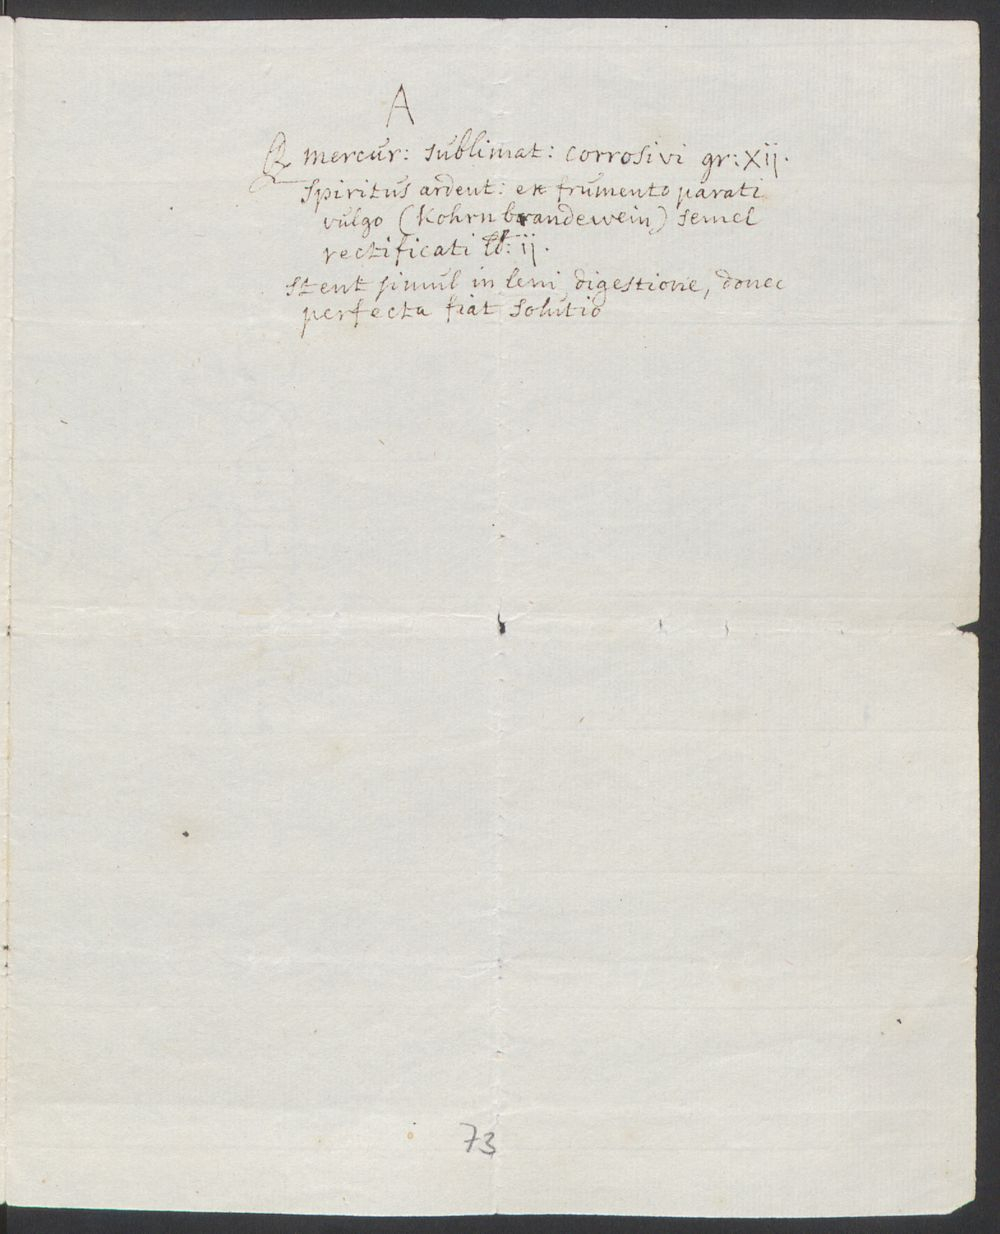 A
℞ mercur: sublimat: corrosivi gr: Xij.
spiritus ardent: ex frumento parati
vulgo (Kohrn brandewein) semel
rectificati ℔: ij.
stent simul in leni digestione, donec
perfecta fiat solutio
73